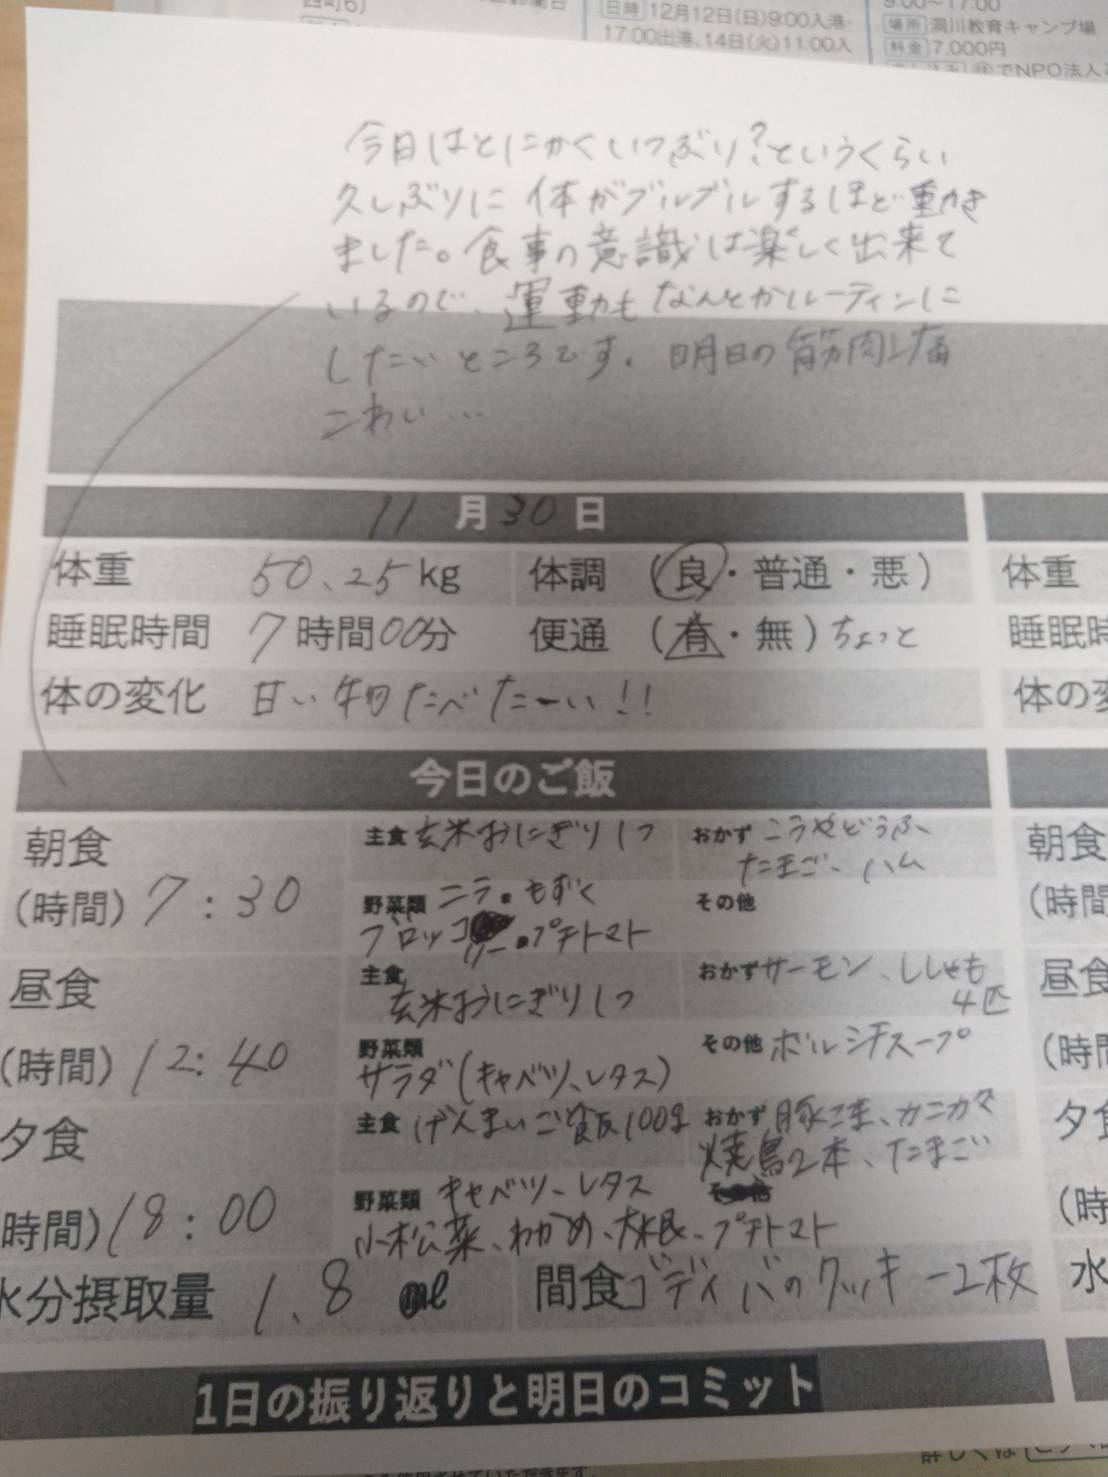 四町6)
日時 12月12日(日)9:00入港・
17:00出港、14日(火)11:00入
9:00〜17:00
場所 洞川教育キャンプ場
料金 7,000円
でNPO法人
今日はとにかくいつぶり?というくらい
久しぶりに体がブルブルするほど動き
ました。食事の意識は楽しく出来て
いるので、運動もなんとかルーティンに
したいところです。明日の筋肉痛
こわい…
11月30日
体重 50.25kg 体調 (良・普通・悪) 体重
睡眠時間 7時間00分 便通 (有・無) ちょっと 睡眠時
体の変化 甘い物たべたーい!! 体の変
今日のご飯
朝食 主食 玄米おにぎり1つ おかず こうやどうふ、 朝食
たまご、ハム
(時間) 7:30 野菜類 ニラ。もずく その他 (時間
ブロッコリー。プチトマト
昼食 主食 おかず サーモン、ししゃも 昼食
玄米おにぎり1つ 4匹
(時間) 12:40 野菜類 その他 ボルシチスープ (時間
サラダ(キャベツ、レタス)
夕食 主食 げんまいご飯100g おかず 豚こま、カニカマ 夕食
焼鳥2本、たまご
時間) 18:00 野菜類 キャベツ、レタス (時
小松菜、わかめ、大根、プチトマト
水分摂取量 1.8 ml 間食 ゴディバのクッキー2枚 水
1日の振り返りと明日のコミット
詳しくは